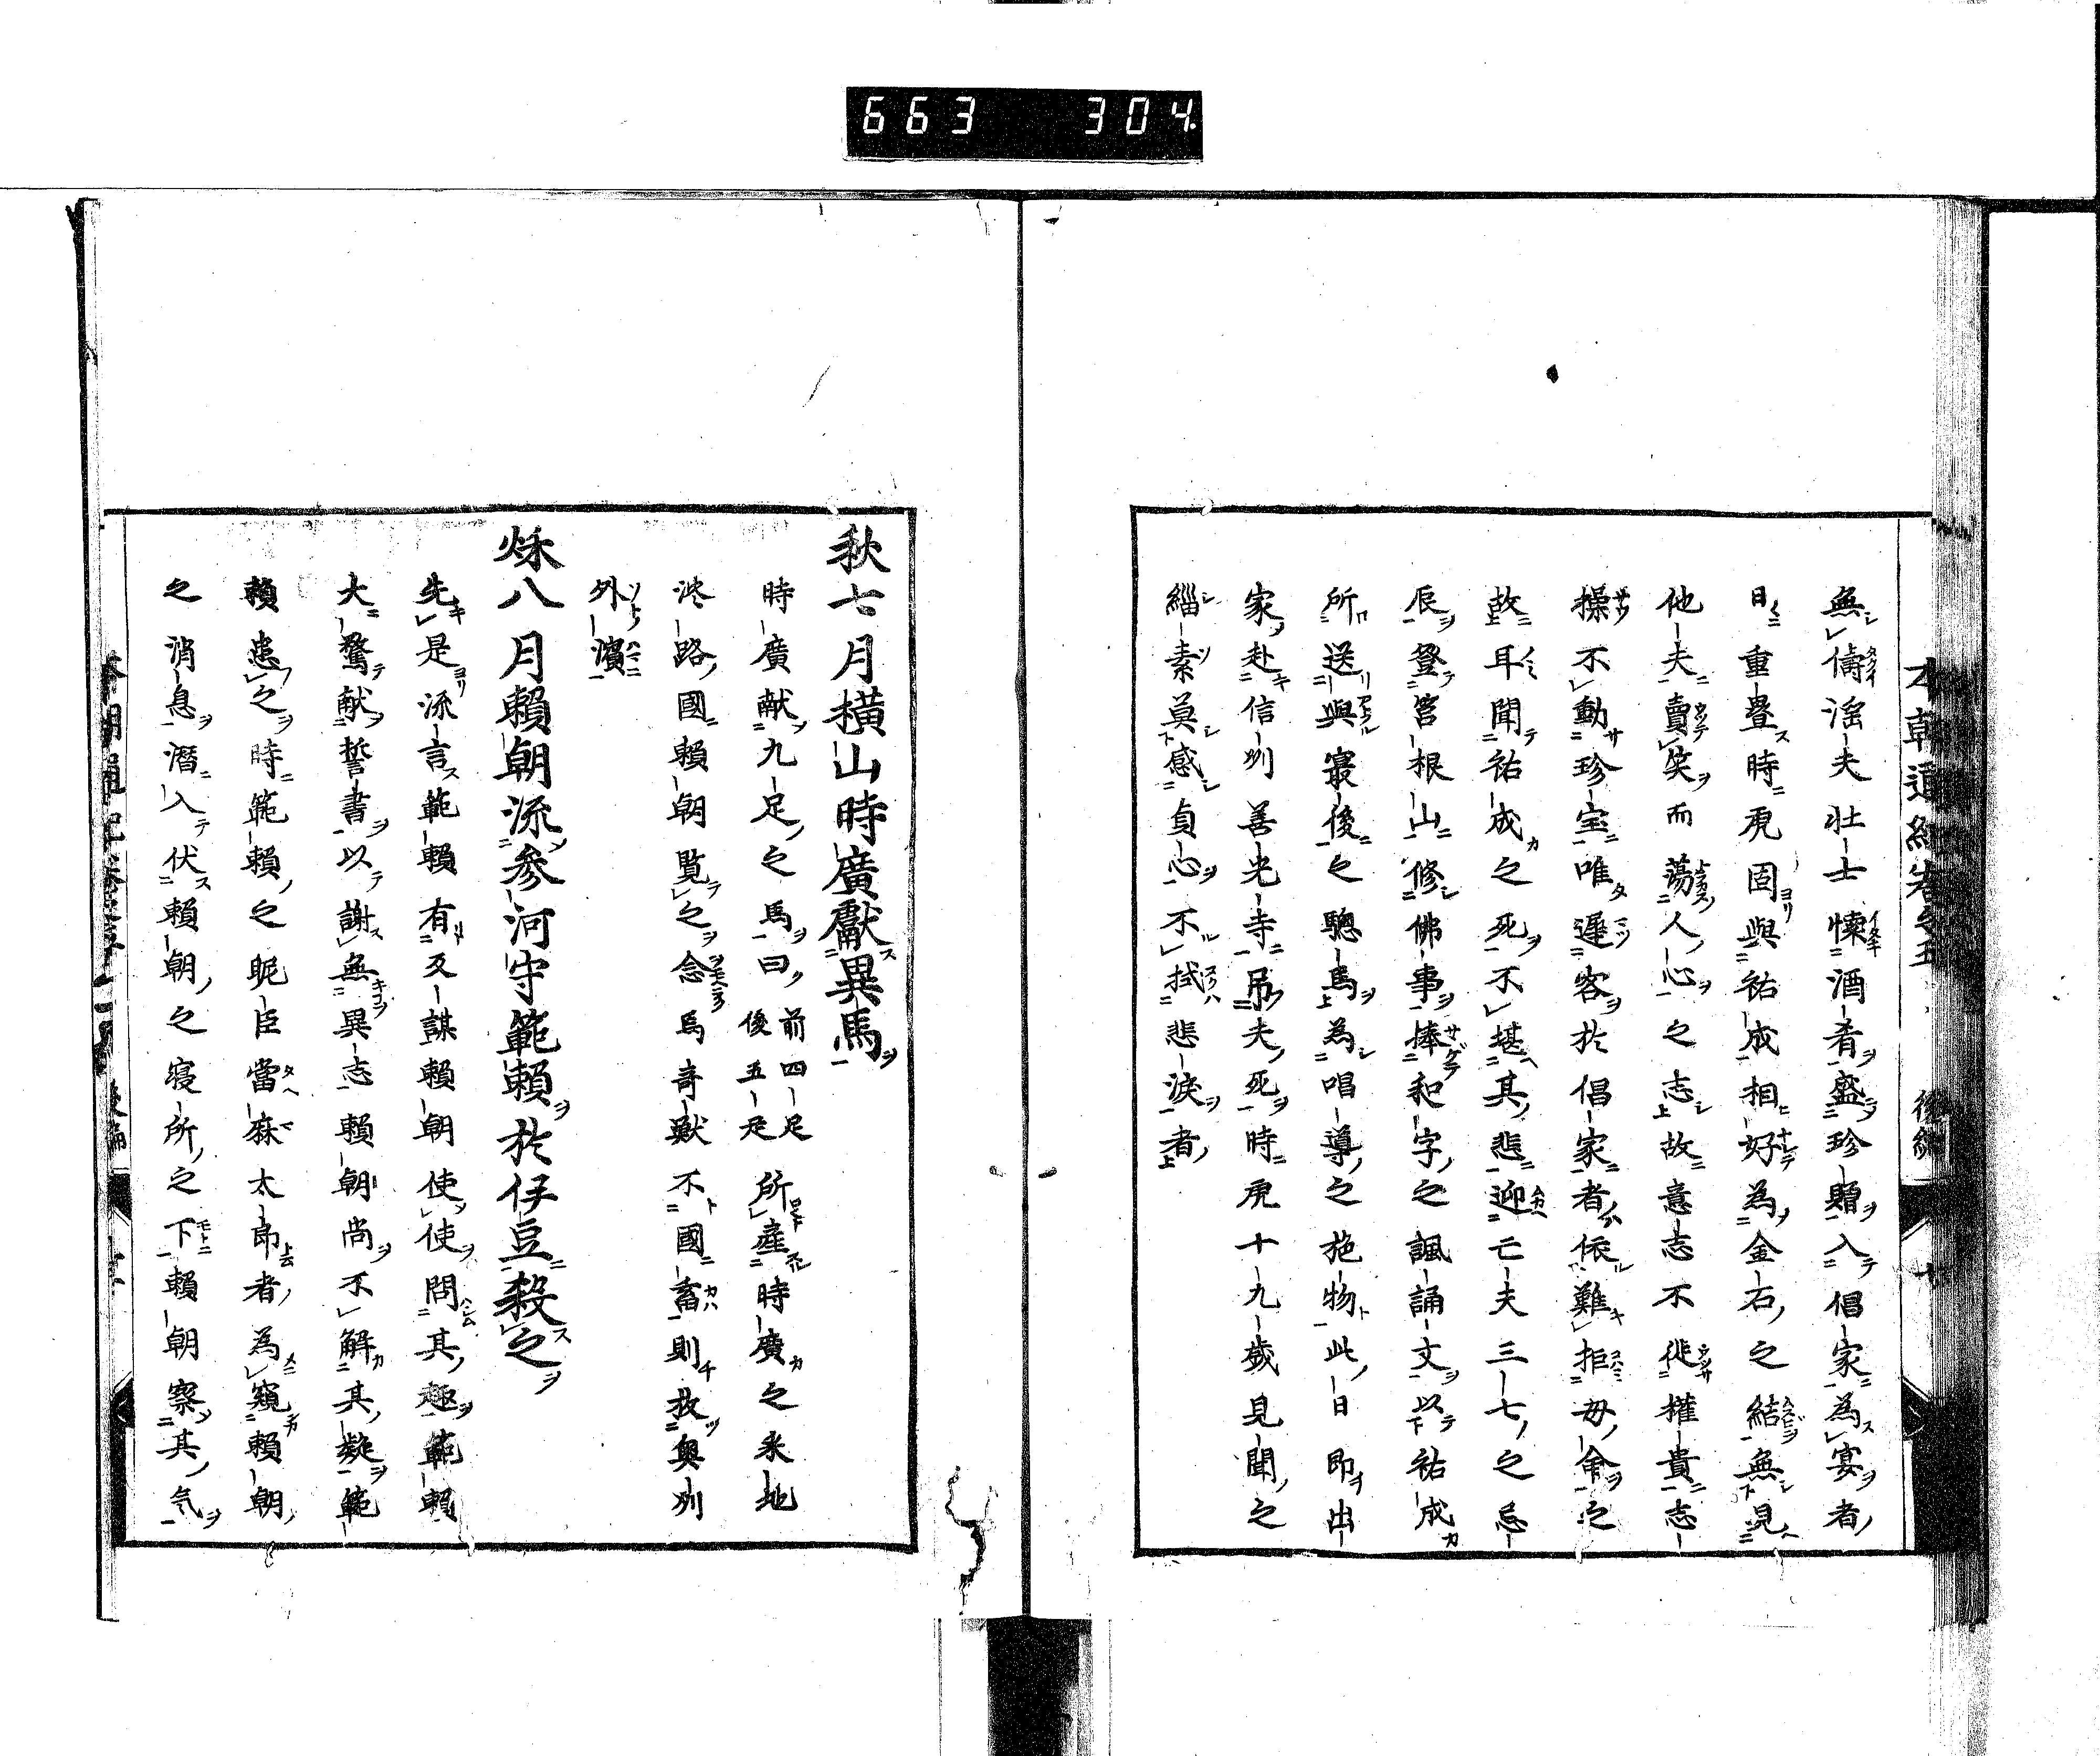 663 304
本朝通紀卷之五 後編
無儔淫夫壮士懐酒肴盛珍贈入倡家為宴者
日重疊時虎固與祐成相好為金石之結無見
他夫賣笑而蕩人心之志故意志不徙權貴志
操不動珍宝唯遅客於倡家者依難拒母命之
故耳聞祐成之死不堪其悲迎亡夫三七之忌
辰登筥根山修佛事捧和字之諷誦文以祐成
所送與最後之驄馬為唱導之施物此日即出
家赴信州善光寺吊夫死時虎十九歳見聞之
緇素莫感貞心不拭悲涙者
秋七月横山時廣獻異馬
時廣献九足之馬曰前四足後五足所産時廣之釆地
淡路國賴朝覧之念為奇獣不國畜則放奥州
外濱
秌八月賴朝流参河守範賴於伊豆殺之
先是流言範賴有反謀賴朝使使問其趣範賴
大驚献誓書以謝無異志賴朝尚不解其疑範
賴患之時範賴之昵臣當麻太郎者為窺賴朝
之消息潛入伏賴朝之寝所之下賴朝察其気